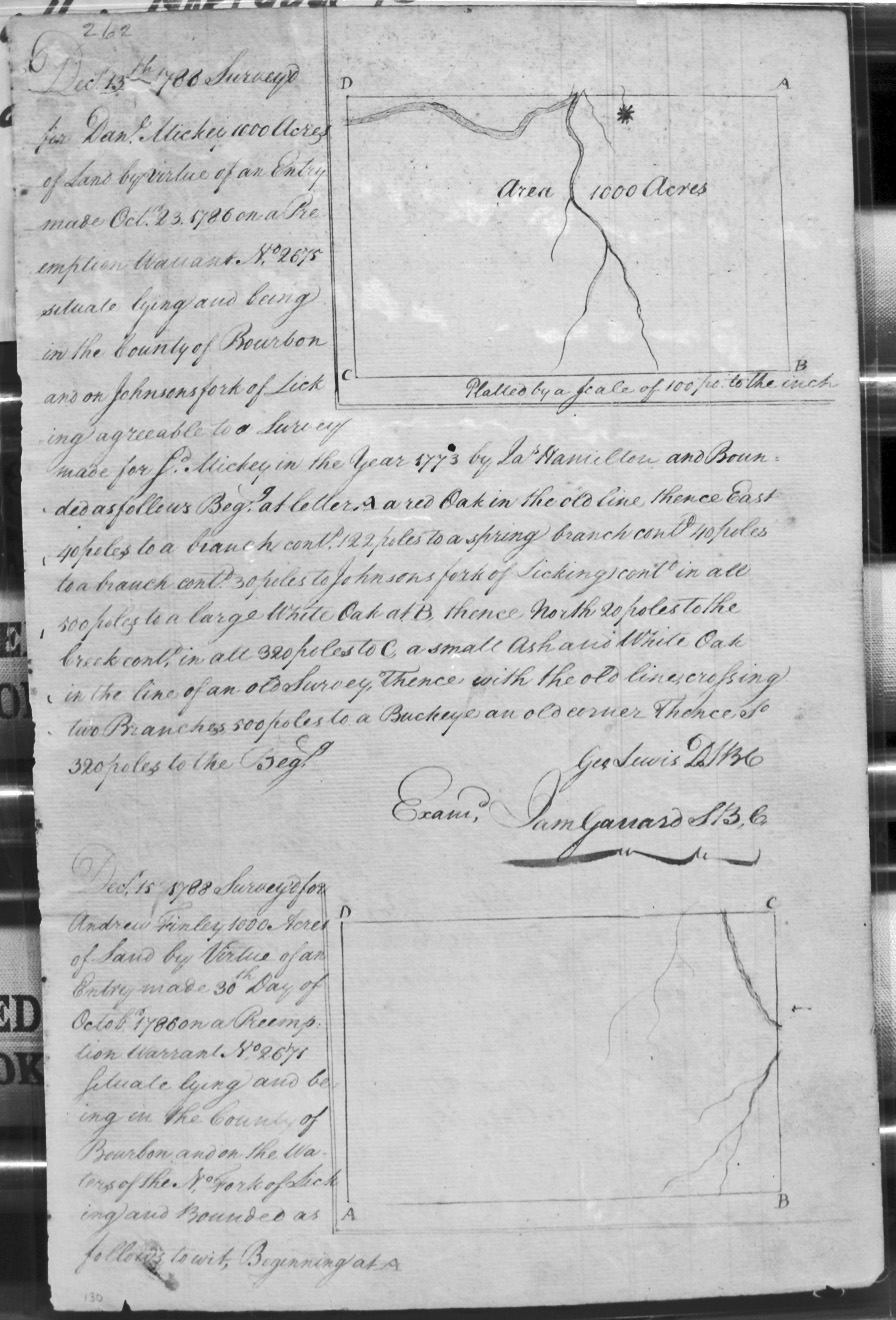 262
Dec.r 15th 1788 Survey'd
for Dan.l Mickey 1000 Acres
of Land by virtue of an Entry
made Oct.r 23. 1786 on a Pre
emption Warrant N.o 2675
situate lying and being
in the County of Bourbon
and on Johnsons fork of Lick
ing agreeable to a Survey
made for s.d Mickey in the Year 1773 by Ja.s Hamilton and Boun-
ded as follows Beg.g at letter A a red Oak in the old line thence East
40 poles to a branch cont.d 122 poles to a spring branch cont.d 40 poles
to a branch cont.d 30 poles to Johnsons fork of Licking cont.d in all
500 poles to a large White Oak at B, thence North 20 poles to the
Creek cont.d in all 320 poles to C, a small Ash and White Oak
in the line of an old Survey, Thence with the old line crossing
two Branches 500 poles to a Buckeye an old corner Thence So
320 poles to the Beg.g
Geo Lewis D.S.B.C
Exam.d Jam Garrard S.B.C.
D
A
Area 1000 Acres
C
B
Platted by a Scale of 100 po. to the inch
Dec.r 15 1788 Survey'd for
Andrew Finley 1000 Acres
of Land by Virtue of an
Entry made 30th Day of
Octob.r 1786 on a Preemp-
tion Warrant N.o 2671
situate lying and be-
ing in the County of
Bourbon and on the Wa-
ters of the N.o Fork of Lick
ing and Bounded as
follows to wit, Beginning at A
D
C
A
B
130